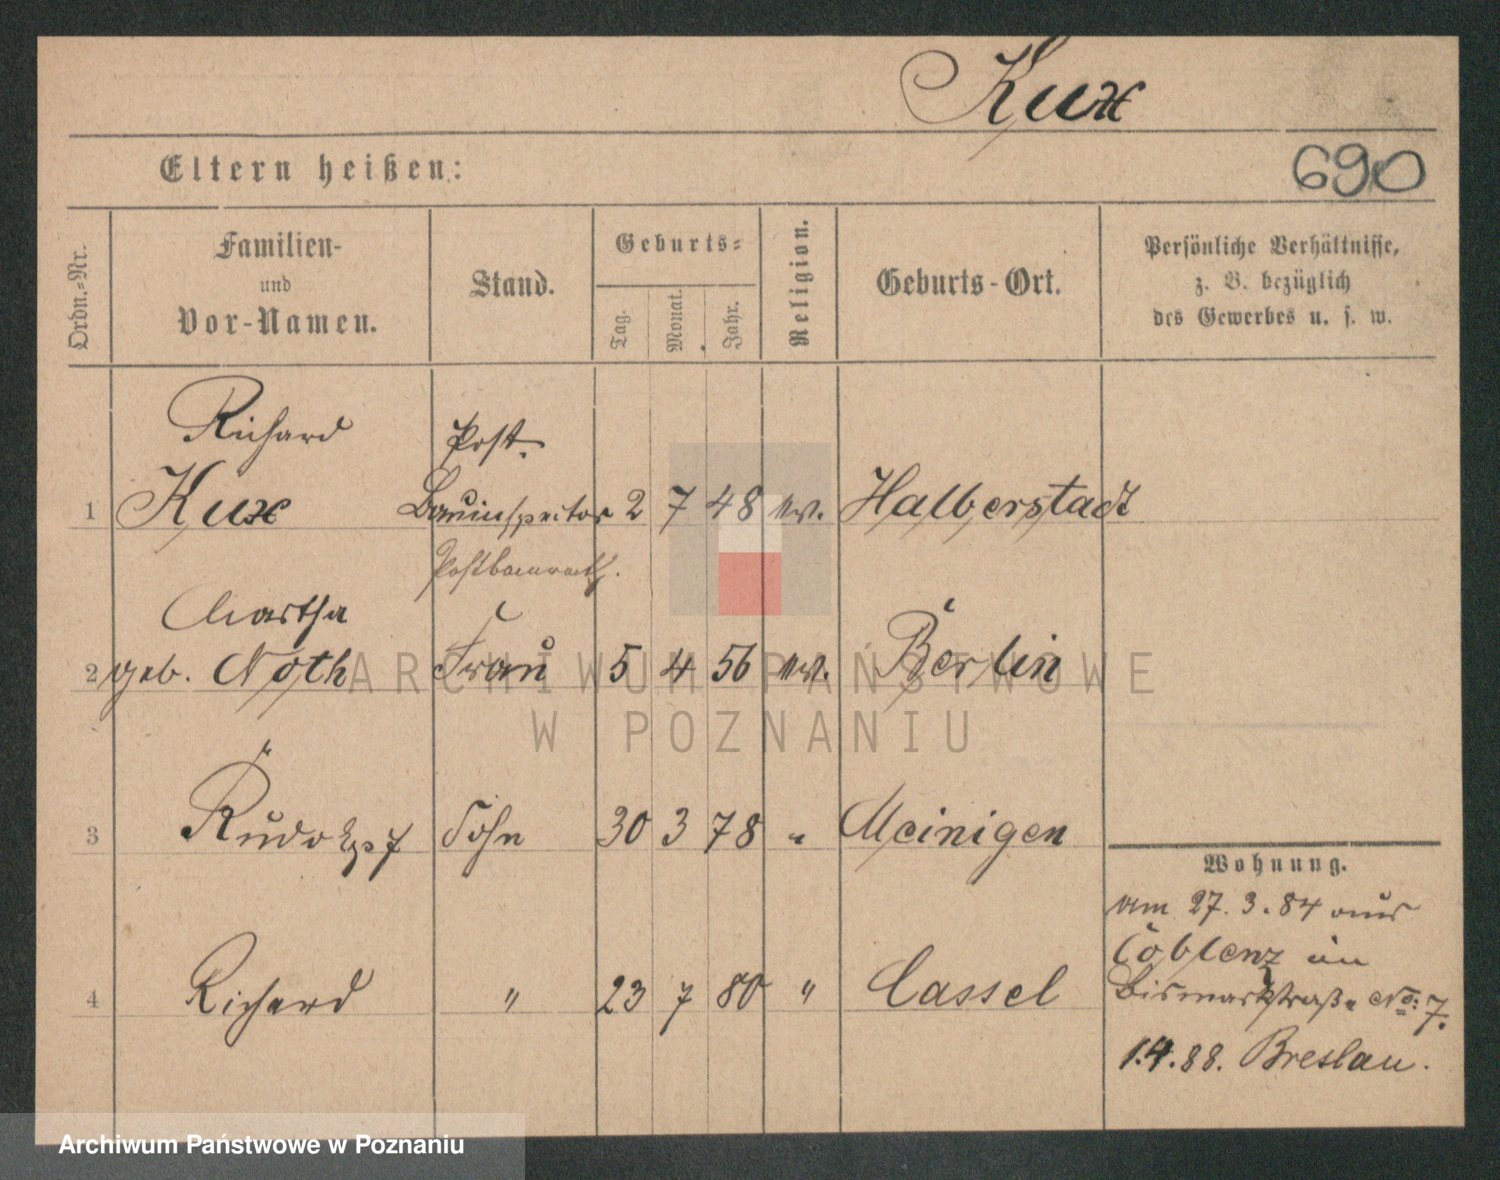 Kux
Eltern heißen:
690
Ordn.-Nr.
Familien-
und
Vor-Namen.
Stand.
Geburts-
Tag.
Monat.
Jahr.
Religion.
Geburts-Ort.
Persönliche Verhältnisse,
z. B. bezüglich
des Gewerbes u. s. w.
Richard Post-
1 Kux Bauinspector 2 7 48 ev. Halberstadt
Postbaurath.
Martha
2 geb. Noth Frau 5 4 56 ev. Berlin
3 Rudolph Sohn 30 3 78 " Meinigen
4 Richard " 23 7 80 " Cassel
Wohnung.
am 27. 3. 84 aus
Coblenz in
Bismarkstraße No: 7.
1.4.88. Breslau.
ARCHIWUM PAŃSTWOWE
W POZNANIU
Archiwum Państwowe w Poznaniu